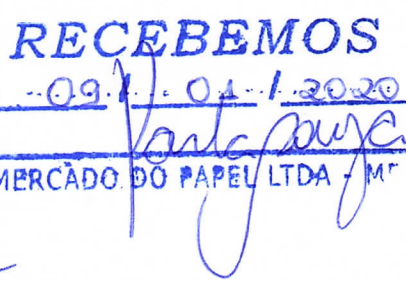 RECEBEMOS
09 / 01 / 2020
MERCADO DO PAPEL LTDA - M